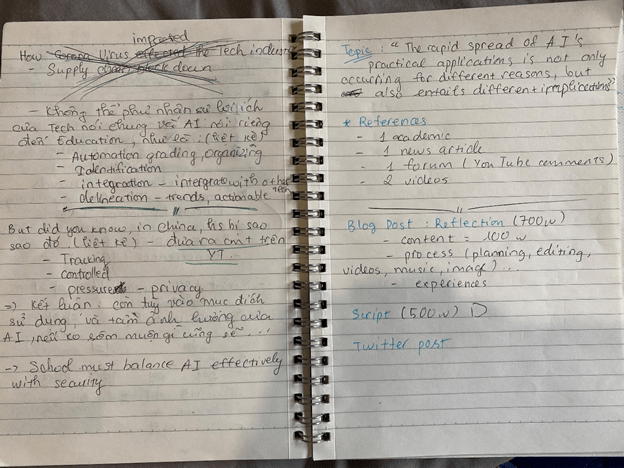 impacted
How Corona Virus effected the Tech industry
- Supply down, block down
- Không thể phủ nhận sự lợi ích
của Tech nói chung với AI nói riêng
đến Education, như là: (liệt kê)
- Automation grading, organizing
- Identification
- integration - intergrate with other
- delineation - trends, actionable
But did you know, in china, hs bị sao
sao đó (liệt kê) - đưa ra cmt trên
YT.
- Tracking
- controlled
- pressure - privacy
=> Kết luận: còn tùy vào mục đích
sử dụng, và tầm ảnh hưởng của
AI, nếu ko sớm muộn gì cũng sẽ ...
-> School must balance AI effectively
with security
Topic: "The rapid spread of AI's
practical applications is not only
occurring for different reasons, but
also entails different implications"
* References
- 1 academic
- 1 news article
- 1 forum (YouTube comments)
- 2 videos
Blog Post: Reflection (700w)
- content = 100 w
- process (planning, editing,
videos, music, image) ...
- experiences
Script (500w)
Twitter post